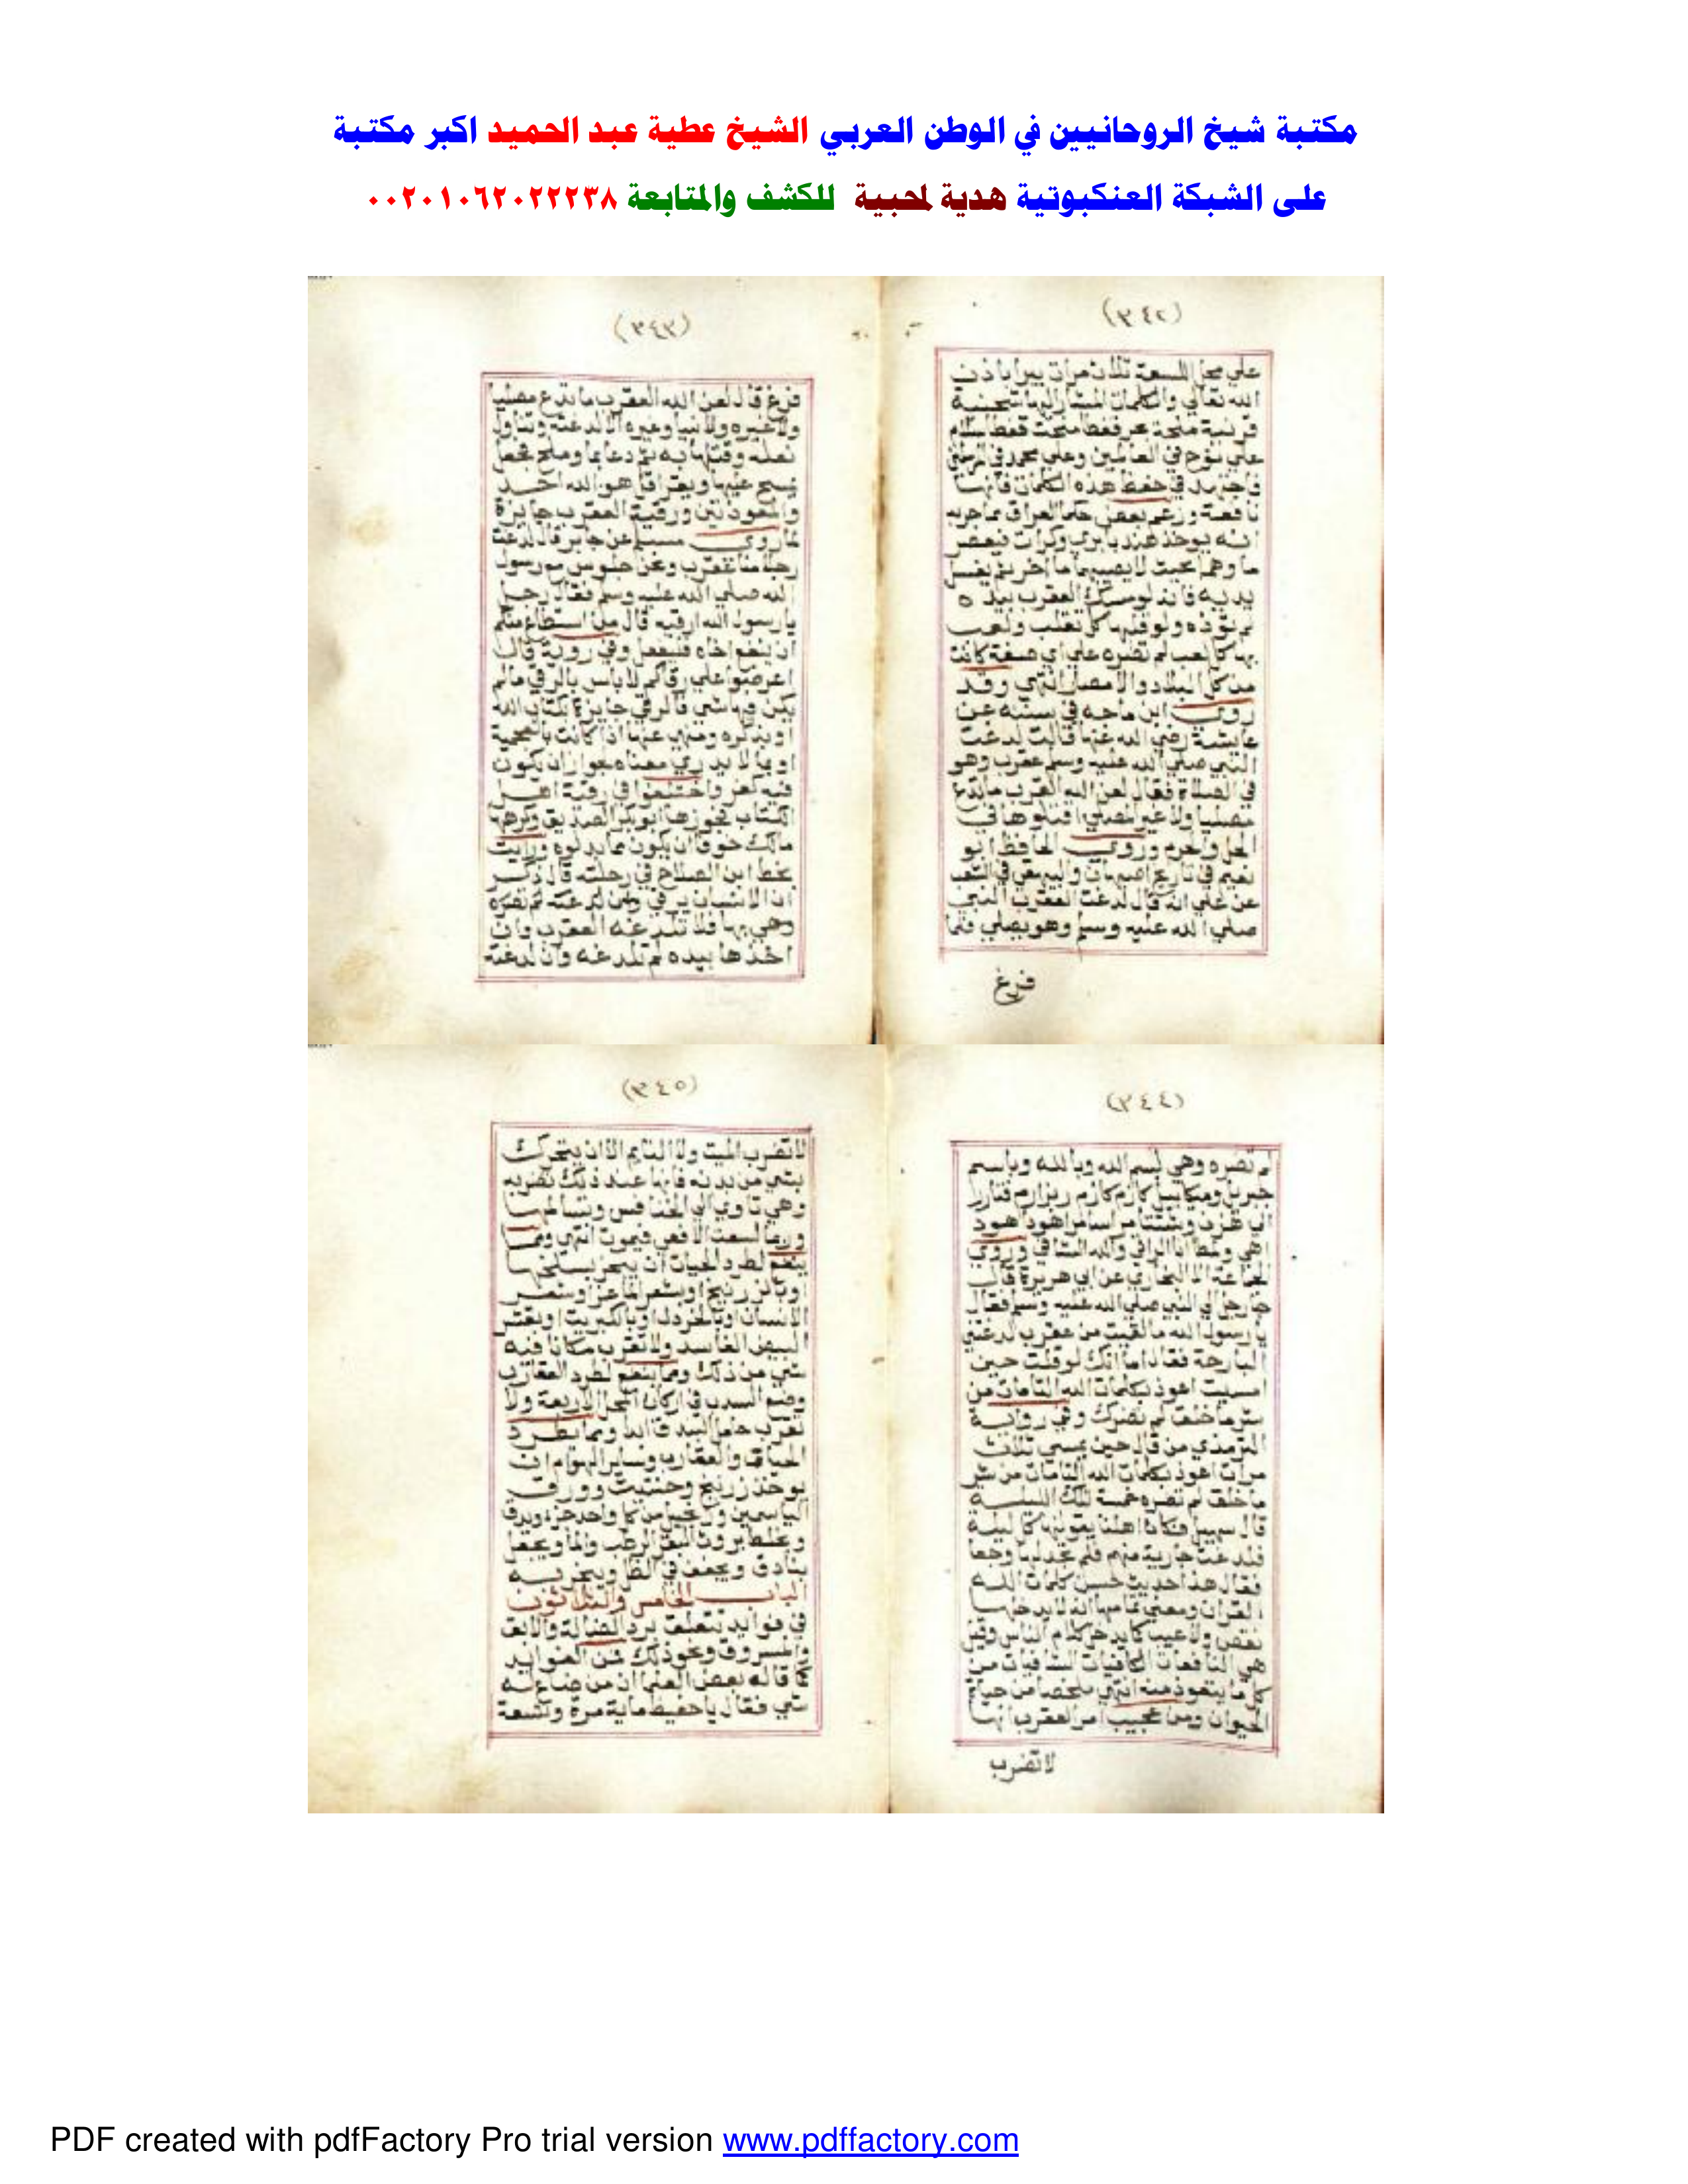 مكتبة شيخ الروحانيين في الوطن العربي الشيخ عطية عبد الحميد اكبر مكتبة
على الشبكة العنكبوتية هدية لمحبية للكشف والمتابعة ٠٠٢٠١٠٦٢٠٢٢٢٣٨
(٣٤٢)
علي محل اللسعة ثلاث مرات يبرا باذن
الله تعالي والكلمات المشار اليها
سلام
علي نوح في العالمين وعلي محمد في المرسلين
في حفظ هذه الكلمات فانها
نافعة وزعم بعض حكما العراق مما جربه
انه يوخذ
بحيث لا يصيبهما ما اخر ثم يغسل
يديه فانه لو مسك العقرب بيده
لم توذه ولو قلبها كل تقلب ولعب
بها كل لعب لم تضره علي اي صفة كانت
من كل البلاد والامصار انتهي وقد
روي ابن ماجه في سننه عن
عايشة رضي الله عنها قالت لدغت
النبي صلي الله عليه وسلم عقرب وهو
في الصلاة فقال لعن الله العقرب ما تدع
مصليا ولا غير مصلي اقتلوها في
الحل والحرم وروي الحافظ ابو
نعيم في تاريخ اصبهان والبيهقي في الشعب
عن علي انه قال لدغت العقرب النبي
صلي الله عليه وسلم وهو يصلي فلما
فرغ
(٣٤٣)
فرغ قال لعن الله العقرب ما تدع مصليا
ولا غيره ولا نبيا وغيره الا لدغته وتناول
نعله وقتلها به ثم دعا بما وملح فجعل
يمسح عليها ويقرا قل هو الله احد
والمعوذتين ورقية العقرب جايزة
لما روي مسلم عن جابر قال لدغت
رجلا منا عقرب ونحن جلوس مع رسول
الله صلي الله عليه وسلم فقال رجل
يا رسول الله ارقيه قال من استطاع منكم
ان ينفع اخاه فليفعل وفي رواية قال
اعرضوا علي رقاكم لا باس بالرقي ما لم
يكن فيها شي فالرقي جايزة بكتاب الله
او بذكره ومنهي عنها اذا كانت بالعجمية
او بما لا يدري معناه لجواز ان يكون
فيه كفر واختلفوا في رقية اهل
الكتاب فجوزها ابو بكر الصديق وكرهها
مالك خوفا ان يكون مما بدلوه ورايت
بخط ابن الصلاح في رحلته قال ذكر
ان الانسان يرقي ولدغته لم تضره
وهي بها فلا تلدغه العقرب وان
اخذها بيده لم تلدغه وان لدغته
(٣٤٤)
لم تضره وهي بسم الله وبالله وباسم
جبريل وميكاييل كازم كازم
اهودا هود
انا الراقي والله الشافي وروي
الجماعة الا البخاري عن ابي هريرة قال
جا رجل الي النبي صلي الله عليه وسلم فقال
يا رسول الله ما لقيت من عقرب لدغتني
البارحة فقال اما انك لو قلت حين
امسيت اعوذ بكلمات الله التامات من
شر ما خلق لم تضرك وفي رواية
الترمذي من قال حين يمسي ثلاث
مرات اعوذ بكلمات الله التامات من شر
ما خلق لم تضره حمة تلك الليلة
قال سهيل فكان اهلنا يقولونها كل ليلة
فلدغت جارية منهم فلم تجد لها وجعا
فقال هذا حديث حسن كلمات الله
القران ومعني تمامها انه لا يدخلها
نقص ولا عيب كما يدخل كلام الناس وقيل
هي النافعات الكافيات الشافيات من
كل ما يتعوذ منه انتهي ملخصا من حياة
الحيوان ومن عجيب امر العقرب انها
لا تضرب
(٣٤٥)
لا تضرب الميت ولا النايم الا ان يتحرك
بشي من بدنه فانها عند ذلك تضربه
وهي تاوي الي الخنافس وتسالمها
وربما لسعت الافعي فيموت انتهي ومما
ينفع لطرد الحيات ان يبخر بسلخها
او بالزرنيخ او بشعر الماعز وشعر
الانسان او بالخردل او بالكبريت او بقشر
البيض الفاسد ولا تقرب مكانا فيه
شي من ذلك ومما ينفع لطرد العقارب
وضع السدب في اركان المحل الاربعة ولا
تقرب حامل البندق ابدا ومما يطرد
الحيات والعقارب وساير الهوام ان
يوخذ زرنيخ وحلتيت وورق
الياسمين من كل واحد جزو ويدق
ويخلط بروث البقر الرطب والما ويجعل
بنادق ويجفف في الظل ويبخر به
الباب الخامس والثلاثون
في فوايد تتعلق برد الضالة والابق
والمسروق ونحو ذلك فمن الفوايد
كما قاله بعض العلما ان من ضاع له
شي فقال يا حفيظ ماية مرة وتسعة
PDF created with pdfFactory Pro trial version www.pdffactory.com